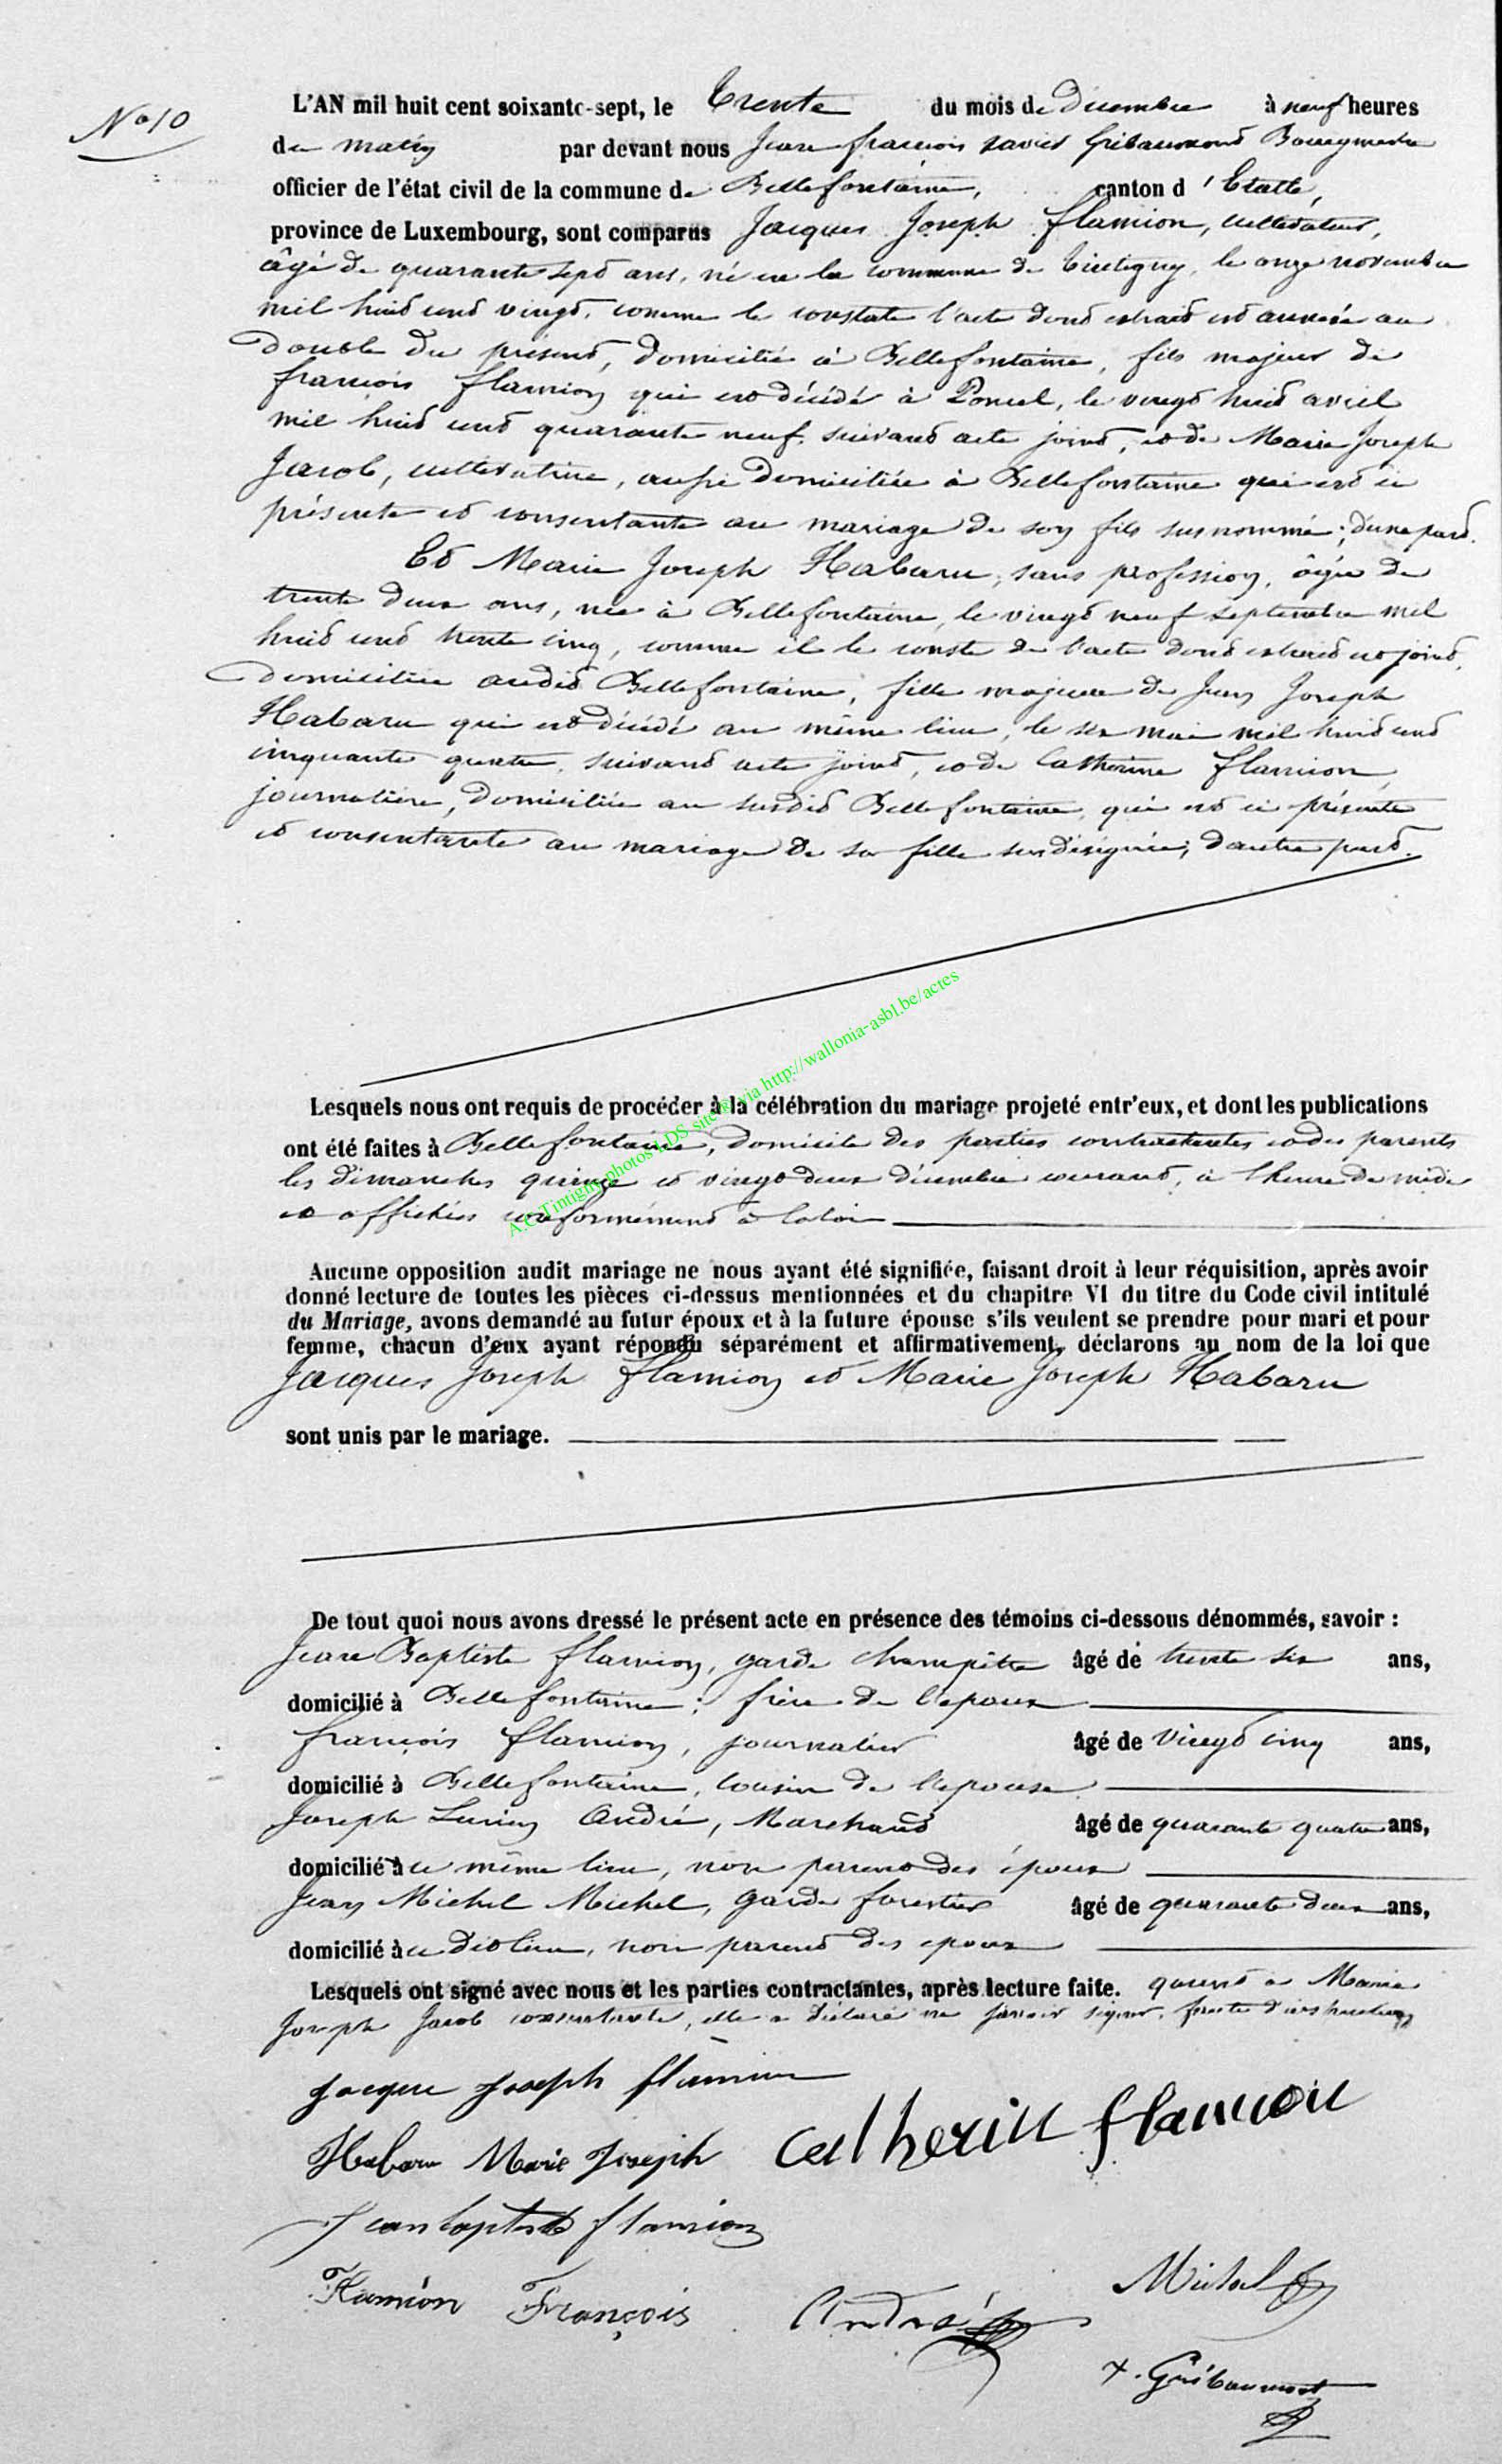 No 10
L'AN mil huit cent soixante-sept, le trente du mois de décembre à neuf heures
du matin par devant nous Jean françois xavier Gribaumont Bourgmestre
officier de l'état civil de la commune de Bellefontaine, canton d'Etalle,
province de Luxembourg, sont comparus Jacques Joseph flamion, cultivateur,
âgé de quarante sept ans, né en la commune de Tintigny, le onze novembre
mil huit cent vingt, comme le constate l'acte dont extrait est annexé au
double du présent, domicilié à Bellefontaine, fils majeur de
françois flamion qui est décédé à Poncel, le vingt huit avril
mil huit cent quarante neuf, suivant acte joint, et de Marie Joseph
Jacob, cultivatrice, aussi domiciliée à Bellefontaine qui est ici
présente et consentante au mariage de son fils susnommé; d'une part.
Et Marie Joseph Habaru, sans profession, âgée de
trente deux ans, née à Bellefontaine, le vingt neuf septembre mil
huit cent trente cinq, comme il le conste de l'acte dont extrait est joint,
domiciliée audit Bellefontaine, fille majeure de Jean Joseph
Habaru qui est décédé au même lieu, le six mai mil huit cent
cinquante quatre, suivant acte joint, et de Catherine flamion,
journalière, domiciliée au susdit Bellefontaine, qui est ici présente
et consentante au mariage de sa fille susdésignée; d'autre part.
A.C.Tintigny photos LDS site ® via http://wallonia-asbl.be/actes
Lesquels nous ont requis de procéder à la célébration du mariage projeté entr'eux, et dont les publications
ont été faites à Bellefontaine, domicile des parties contractantes et des parents
les dimanches quinze et vingt deux décembre courant, à l'heure de midi
et affichées conformément à la loi
Aucune opposition audit mariage ne nous ayant été signifiée, faisant droit à leur réquisition, après avoir
donné lecture de toutes les pièces ci-dessus mentionnées et du chapitre VI du titre du Code civil intitulé
du Mariage, avons demandé au futur époux et à la future épouse s'ils veulent se prendre pour mari et pour
femme, chacun d'eux ayant répondu séparément et affirmativement, déclarons au nom de la loi que
Jacques Joseph flamion et Marie Joseph Habaru
sont unis par le mariage.
De tout quoi nous avons dressé le présent acte en présence des témoins ci-dessous dénommés, savoir :
Jean Baptiste flamion, garde champêtre âgé de trente six ans,
domicilié à Bellefontaine; frère de l'époux
françois flamion, journalier âgé de vingt cinq ans,
domicilié à Bellefontaine, cousin de l'épouse
Joseph Lucien André, Marchand âgé de quarante quatre ans,
domicilié à ce même lieu, non parent des époux
Jean Michel Michel, garde forestier âgé de quarante deux ans,
domicilié à ce dit lieu, non parent des époux
Lesquels ont signé avec nous et les parties contractantes, après lecture faite. quant à Marie
Joseph Jacob consentante, elle a déclaré ne savoir signer, faute d'instruction
Jacque Joseph flamion
Habaru Marie Joseph catherin flamion
Jean baptiste flamion
Michel
Flamion François André
X. Gribaumont